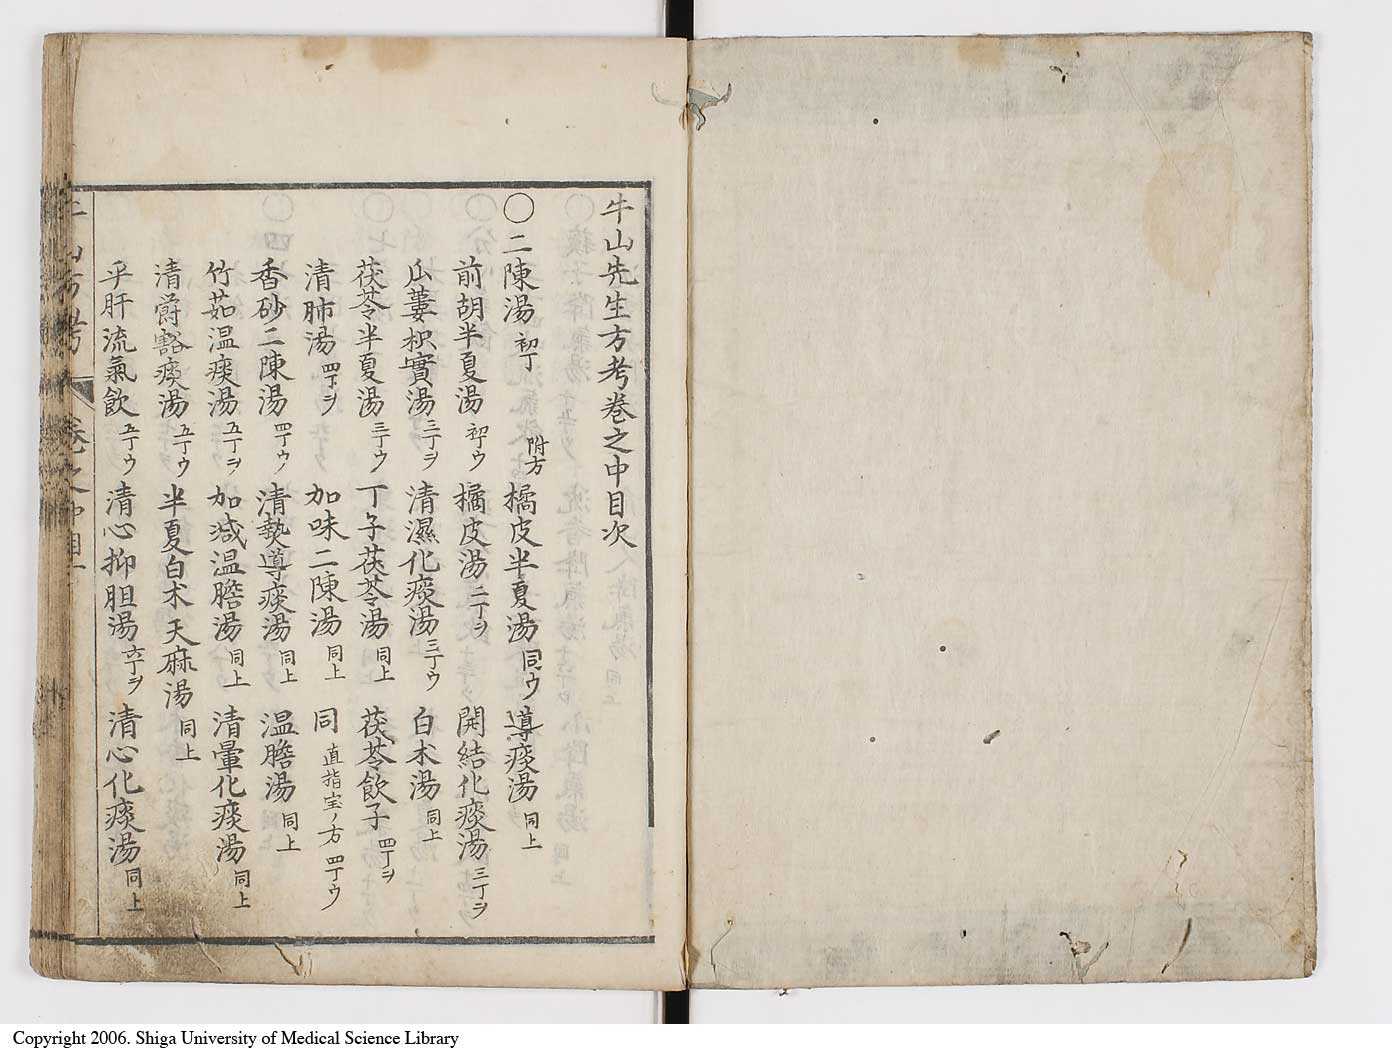 牛山先生方考巻之中目次
〇二陳湯 初丁 附方 橘皮半夏湯 同ウ 導痰湯 同上
前胡半夏湯 初丁ウ 橘皮湯 二丁ヲ 開結化痰湯 三丁ヲ
瓜蔞枳實湯 三丁ヲ 清濕化痰湯 三丁ウ 白朮湯 同上
茯苓半夏湯 三丁ウ 丁子茯苓湯 同上 茯苓飲子 四丁ヲ
清肺湯 四丁ヲ 加味二陳湯 同上 同 直指宝ノ方 四丁ウ
香砂二陳湯 四丁ウ 清熱導痰湯 同上 温膽湯 同上
竹茹温痰湯 五丁ヲ 加减温膽湯 同上 清暈化痰湯 同上
清欝豁痰湯 五丁ウ 半夏白朮天麻湯 同上
平肝流氣飲 五丁ウ 清心抑胆湯 六丁ヲ 清心化痰湯 同上
牛山方考 巻之中目
Copyright 2006. Shiga University of Medical Science Library